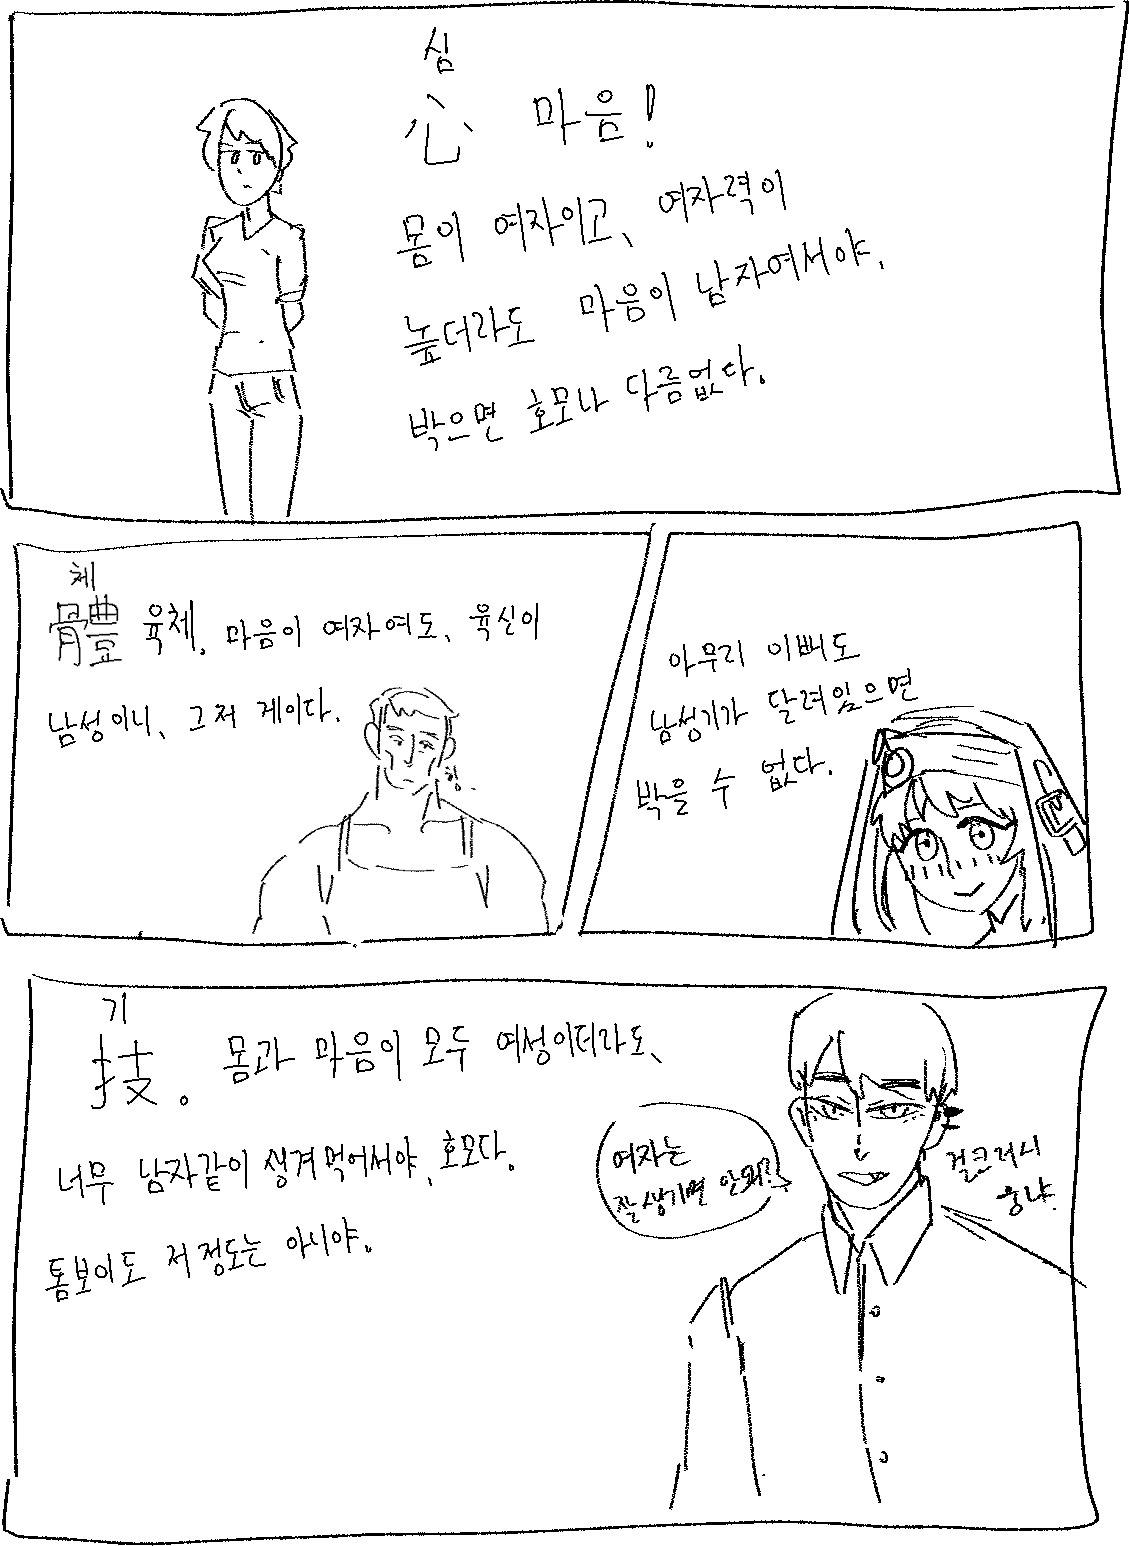 심
心 마음!
몸이 여자이고, 여자력이
높더라도 마음이 남자여서야,
박으면 호모나 다름없다.
체
體 육체. 마음이 여자여도, 육신이
남성이니, 그저 게이다.
힝.
아무리 이뻐도
남성기가 달려있으면
박을 수 없다.
기
技。 몸과 마음이 모두 여성이더라도,
너무 남자같이 생겨먹어서야, 호모다.
톰보이도 저 정도는 아니야.
여자는
잘생기면 안돼?
걸크러시
웅냐.